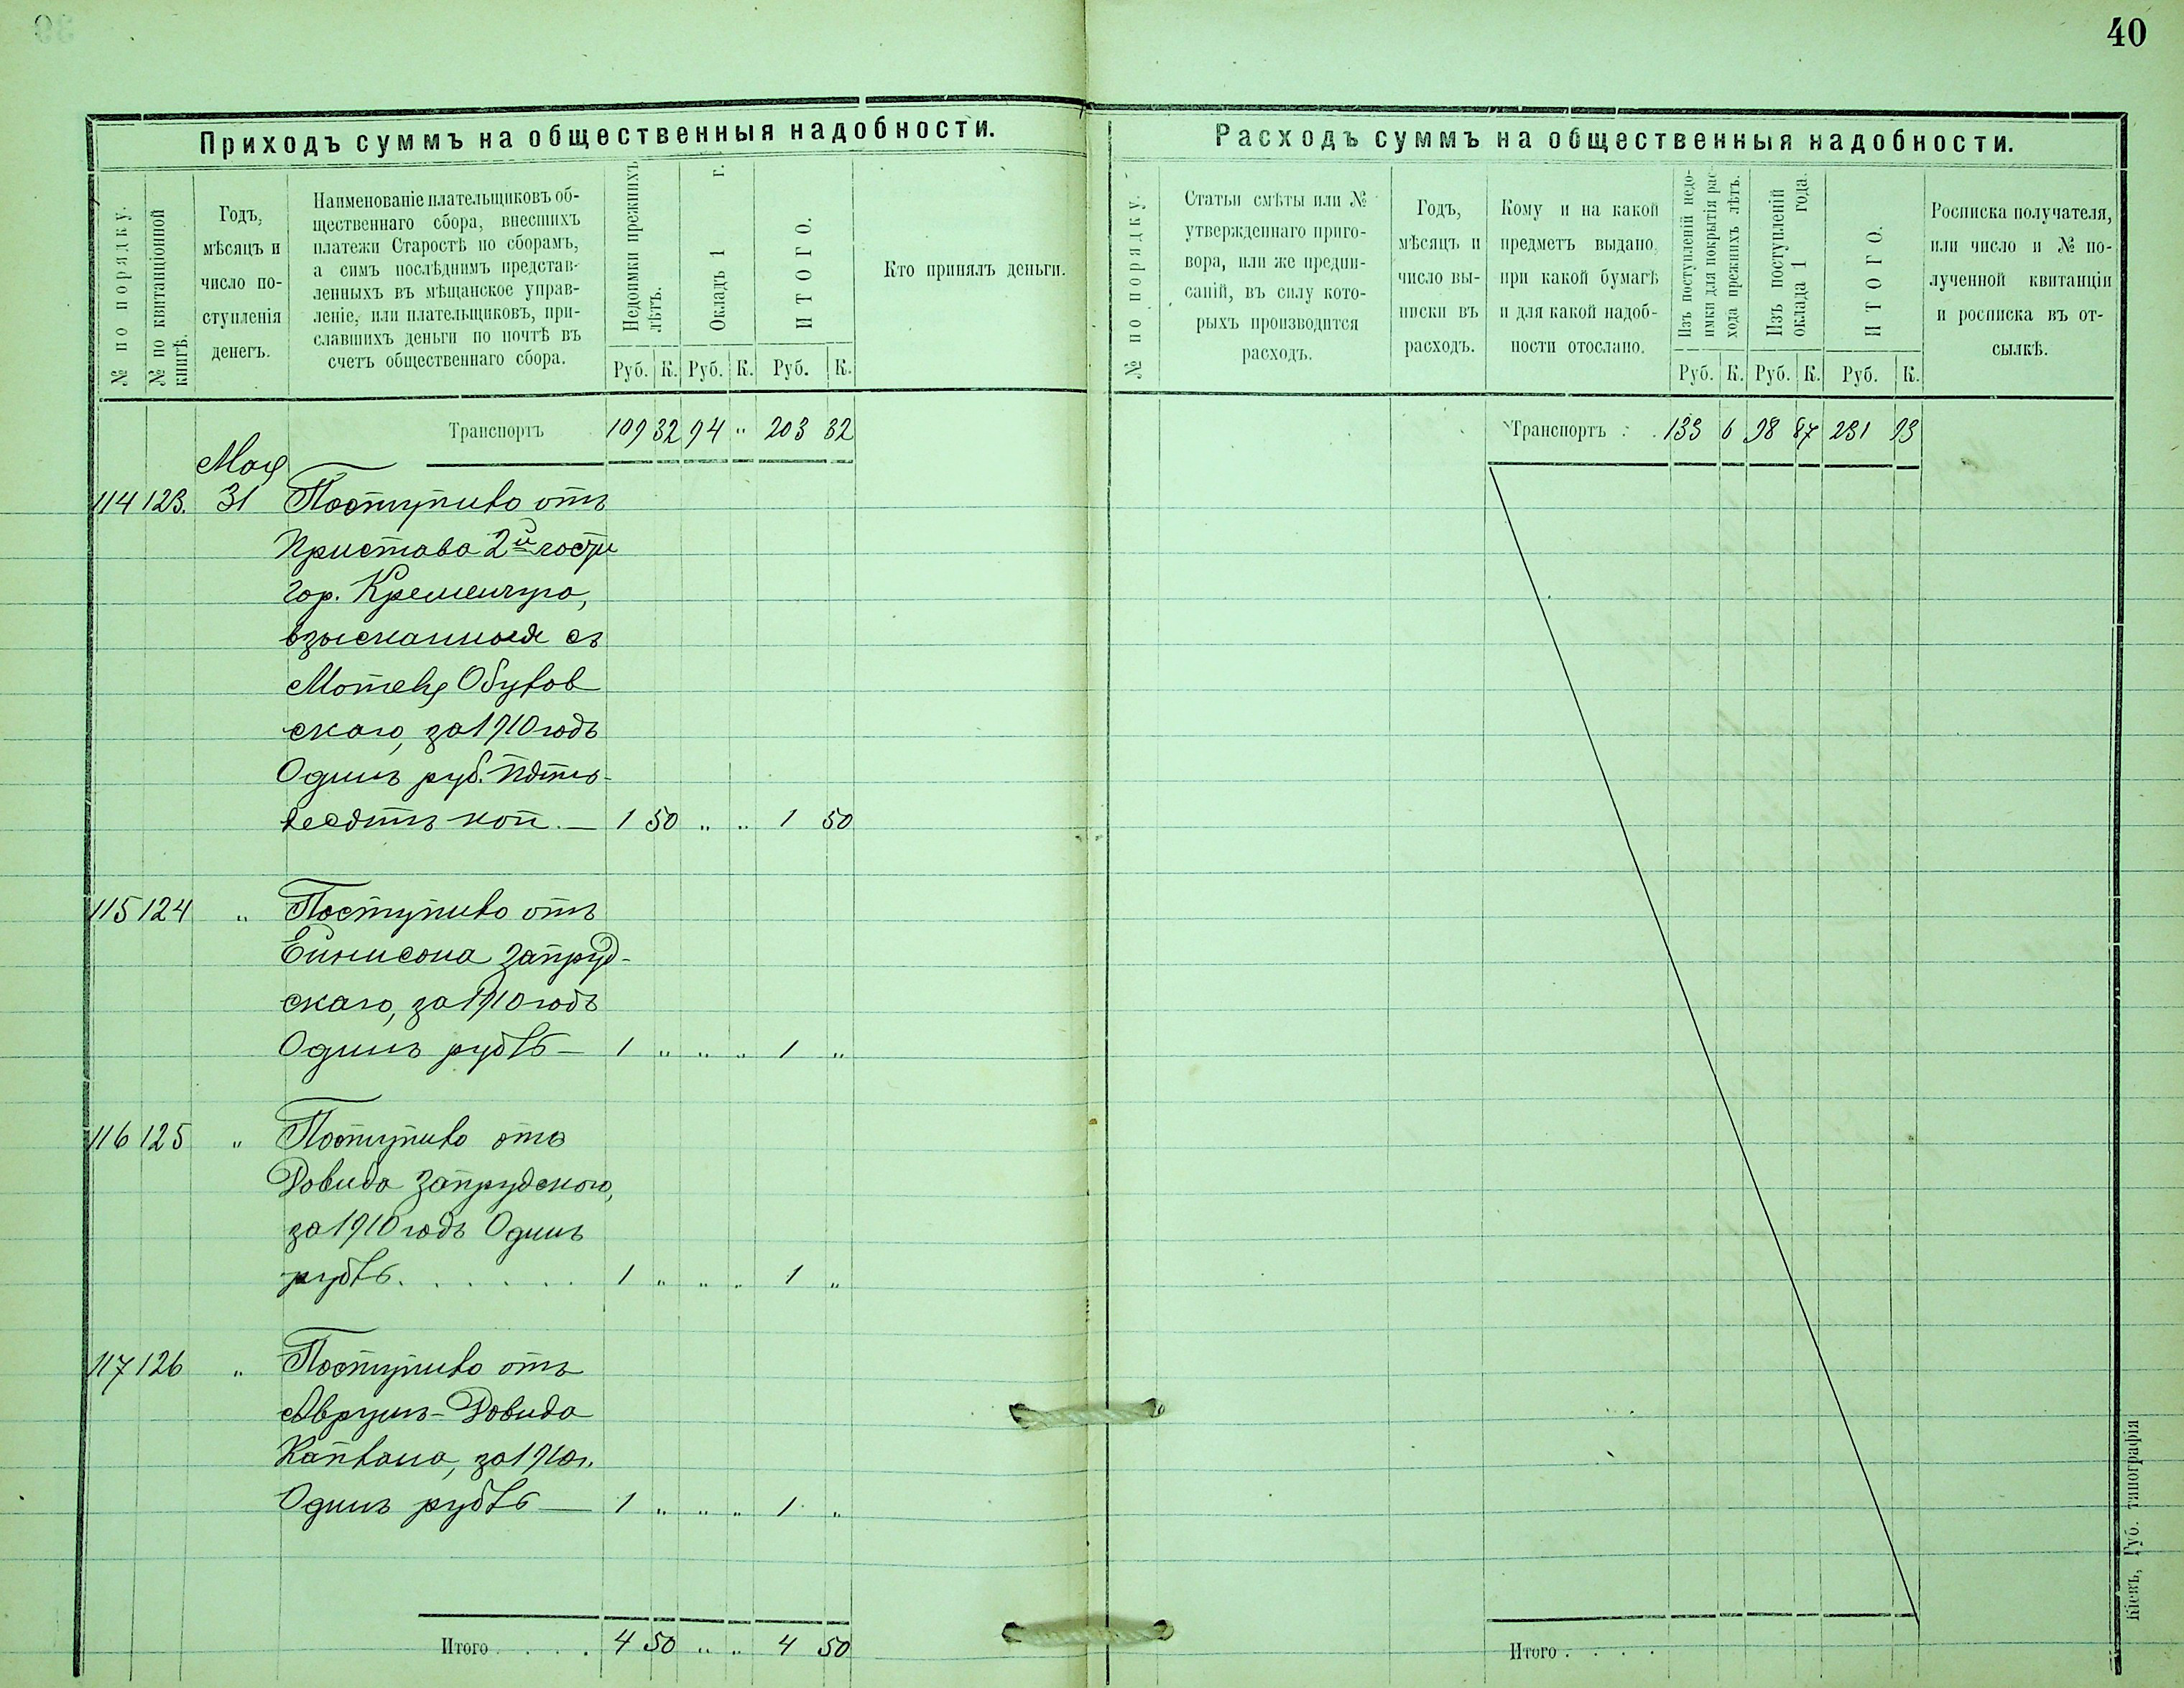 40
Приходъ суммъ на общественныя надобности.
№ по порядку.
№ по квитанціонной книгѣ.
Годъ, мѣсяцъ и число поступленія денегъ.
Наименованіе плательщиковъ об-
щественнаго сбора, внесшихъ
платежи Старостѣ по сборамъ,
а симъ послѣднимъ представ-
ленныхъ въ мѣщанское управ-
леніе, или плательщиковъ, при-
славшихъ деньги по почтѣ въ
счетъ общественнаго сбора.
Недоимки прежнихъ лѣтъ.
Окладъ 1 г.
ИТОГО.
Руб. К. Руб. К. Руб. К.
Кто принялъ деньги.
Транспортъ 109 32 94 " 203 32
Мая
114 123. 31 Поступило отъ
Пристава 2й части
гор. Кременчуга,
взысканные съ
Мотеля Обухов
скаго, за 1910 годъ
Одинъ руб. пять-
десятъ коп. — 1 50 " " 1 50
115 124 " Поступило отъ
Ейнисона Запруд-
скаго, за 1910 годъ
Одинъ рубль — 1 " " " 1 "
116 125 " Поступило отъ
Довида Запрудскаго,
за 1910 годъ Одинъ
рубль. . . . . . . 1 " " " 1 "
117 126 " Поступило отъ
Аврумъ-Довида
Каплана, за 1910 г.
Одинъ рубль — 1 " " " 1 "
Итого . . . . 4 50 " " 4 50
Расходъ суммъ на общественныя надобности.
№ по порядку.
Статьи смѣты или №
утвержденнаго приго-
вора, или же предпи-
саній, въ силу кото-
рыхъ производится
расходъ.
Годъ,
мѣсяцъ и
число вы-
писки въ
расходъ.
Кому и на какой
предметъ выдано,
при какой бумагѣ
и для какой надоб-
ности отослано.
Изъ поступленій недо-
имки для покрытія рас
хода прежнихъ лѣтъ.
Изъ поступленій
оклада 1 года.
ИТОГО.
Руб. К. Руб. К. Руб. К.
Росписка получателя,
или число и № по-
лученной квитанціи
и росписка въ от-
сылкѣ.
Транспортъ . . 133 6 98 87 231 93
Итого . . . .
Кіевъ, Губ. типографія